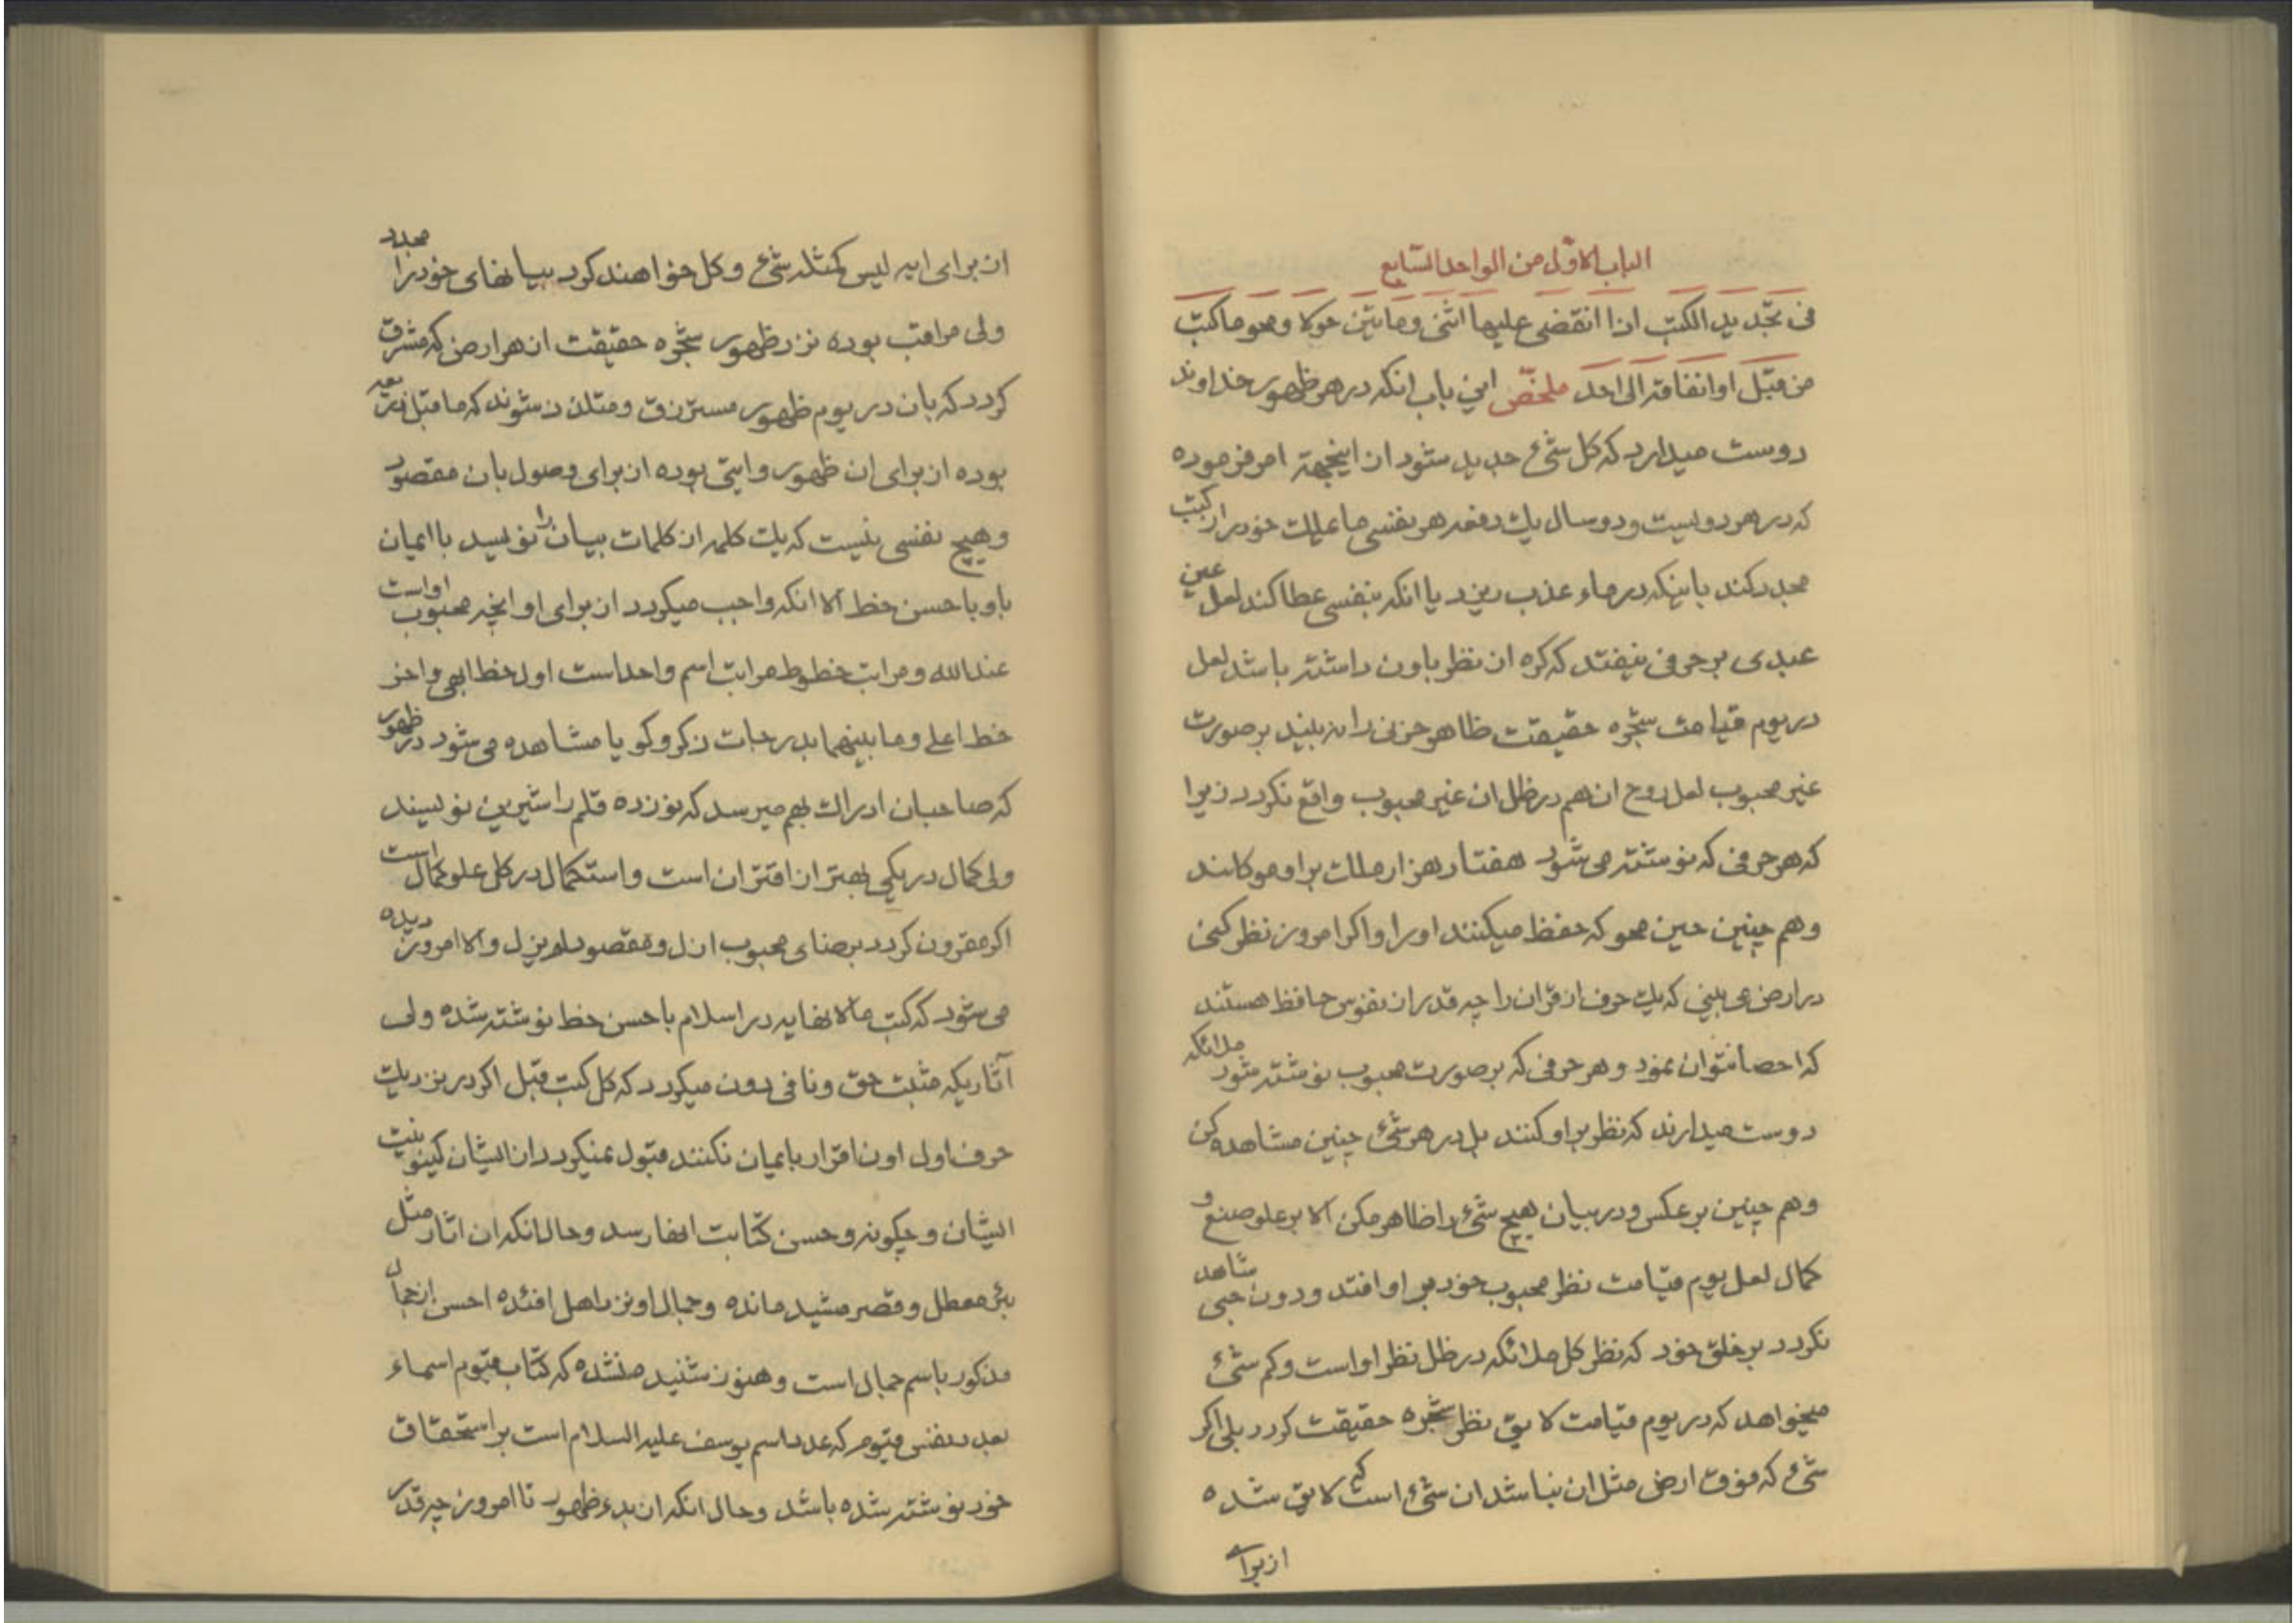 الباب الاوّل من الواحد السّابع
فی تجدید الکتب اذا انقضی علیها اثنی و مایتین حولا و محو ما کتب
من قبل او انفاقه الی احد ملخّص این باب انکه در هر ظهور خداوند
دوست میدارد که کل شئ جدید شود از اینجهة امر فرموده
که در هر دویست و دو سال یك دفعه هر نفسی ما یملك خود را از کتب
مجدد کند باینکه در ماء عذب ریزد یا انکه بنفسی عطا کند لعل عین
عبدی بر حرفی نیفتد که کره از نظر باون داشته باشد لعل
در یوم قیامت شجره حقیقت ظاهر حزنی را نه بیند بر صورت
غیر محبوب لعل روح ان هم در ظل ان غیر محبوب واقع نکردد زیرا
که هر حرفی که نوشته می شود هفتاد هزار ملك بر او موکلند
و هم چنین حین محو که حفظ میکنند او را و اکر امروز نظر کنی
در ارض می بینی که یك حرف از قران را چه قدر از نفوس حافظ هستند
که احصا نتوان نمود و هر حرفی که بر صورت محبوب نوشته شود ملائکه
دوست میدارند که نظر بر او کنند بل در هر شئ چنین مشاهده کن
و هم چنین بر عکس و در بیان هیچ شئ را ظاهر مکن الا بر علو صنع و
کمال لعل یوم قیامت نظر محبوب خود بر او افتد و دون حبی شاهد
نکردد بر خلق خود که نظر کل ملائکه در ظل نظر او است و کم شئ
میخواهد که در یوم قیامت لایق نظر شجره حقیقت کردد بلی اکر
شئ که فوق ارض مثل ان نباشد ان شئ است که لایق شده
از برای
ان برای ایه لیس کمثله شئ و کل خواهند کرد بیانهای خود را مجدد
ولی مراقب بوده نزد ظهور شجره حقیقت از هر ارض که مشرق
کردد که بان در یوم ظهور مسترزق و متلذذ شوند که ما قبل تربیة
بوده از برای ان ظهور و ایتی بوده از برای وصول بان مقصود
و هیچ نفسی نیست که یك کلمه از کلمات بیان را نویسد با ایمان
باو باحسن خط الا انکه واجب میکردد از برای او انچه محبوب او است
عند الله و مراتب خطوط مراتب اسم واحد است اول خط ابهی و اخر
خط اعلی و ما بینهما بدرجات ذکر و کو یا مشاهده می شود در ظهور
که صاحبان ادراك بهم میرسد که نوزده قلم را شیرین نویسند
ولی کمال در یکی بهتر از اقتران است و استکمال در کل علو کمال است
اکر مقرون کردد برضای محبوب ازل و مقصود لم یزل و الا امروز دیده
می شود که کتب مالانهایه در اسلام باحسن خط نوشته شده ولی
آثاریکه مثبت حق و نافی دون میکردد که کل کتب قبل اکر در نزد یك
حرف اول اون اقرار بایمان نکنند قبول نمیکردد از ایشان کینونیت
ایشان و چکونه و حسن کتابت انها رسد و حال انکه ان اثار مثل
بئر معطل و قصر مشید مانده و جمال او نزد اهل افئده احسن از جمال
مذکور باسم جمال است و هنوز شنیده نشده که کتاب قیوم اسماء
بعدد نفس قیوم که عدد اسم یوسف علیه السلام است بر استحقاق
خود نوشته شده باشد و حال انکه از بدء ظهور تا امروز چه قدر